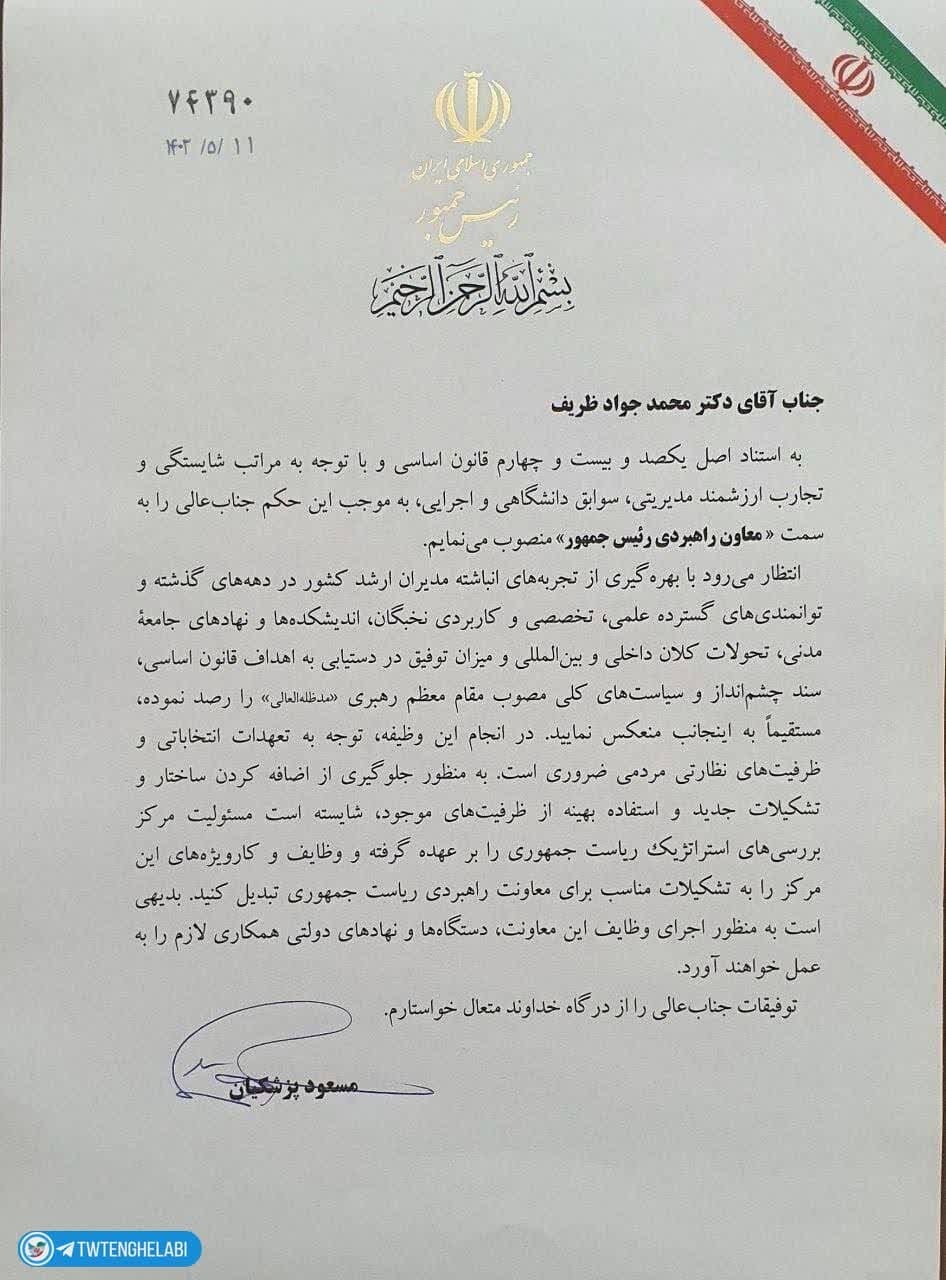 ۷۴۳۹۰
۱۴۰۳/۵/۱۱
جمهوری اسلامی ایران
رئیس جمهور
بِسْمِ اللهِ الرَّحْمَنِ الرَّحِيمِ
جناب آقای دکتر محمد جواد ظریف
به استناد اصل یکصد و بیست و چهارم قانون اساسی و با توجه به مراتب شایستگی و
تجارب ارزشمند مدیریتی، سوابق دانشگاهی و اجرایی، به موجب این حکم جناب‌عالی را به
سمت «معاون راهبردی رئیس جمهور» منصوب می‌نمایم.
انتظار می‌رود با بهره‌گیری از تجربه‌های انباشته مدیران ارشد کشور در دهه‌های گذشته و
توانمندی‌های گسترده علمی، تخصصی و کاربردی نخبگان، اندیشکده‌ها و نهادهای جامعهٔ
مدنی، تحولات کلان داخلی و بین‌المللی و میزان توفیق در دستیابی به اهداف قانون اساسی،
سند چشم‌انداز و سیاست‌های کلی مصوب مقام معظم رهبری «مدظله‌العالی» را رصد نموده،
مستقیماً به اینجانب منعکس نمایید. در انجام این وظیفه، توجه به تعهدات انتخاباتی و
ظرفیت‌های نظارتی مردمی ضروری است. به منظور جلوگیری از اضافه کردن ساختار و
تشکیلات جدید و استفاده بهینه از ظرفیت‌های موجود، شایسته است مسئولیت مرکز
بررسی‌های استراتژیک ریاست جمهوری را بر عهده گرفته و وظایف و کارویژه‌های این
مرکز را به تشکیلات مناسب برای معاونت راهبردی ریاست جمهوری تبدیل کنید. بدیهی
است به منظور اجرای وظایف این معاونت، دستگاه‌ها و نهادهای دولتی همکاری لازم را به
عمل خواهند آورد.
توفیقات جناب‌عالی را از درگاه خداوند متعال خواستارم.
مسعود پزشکیان
TWTENGHELABI